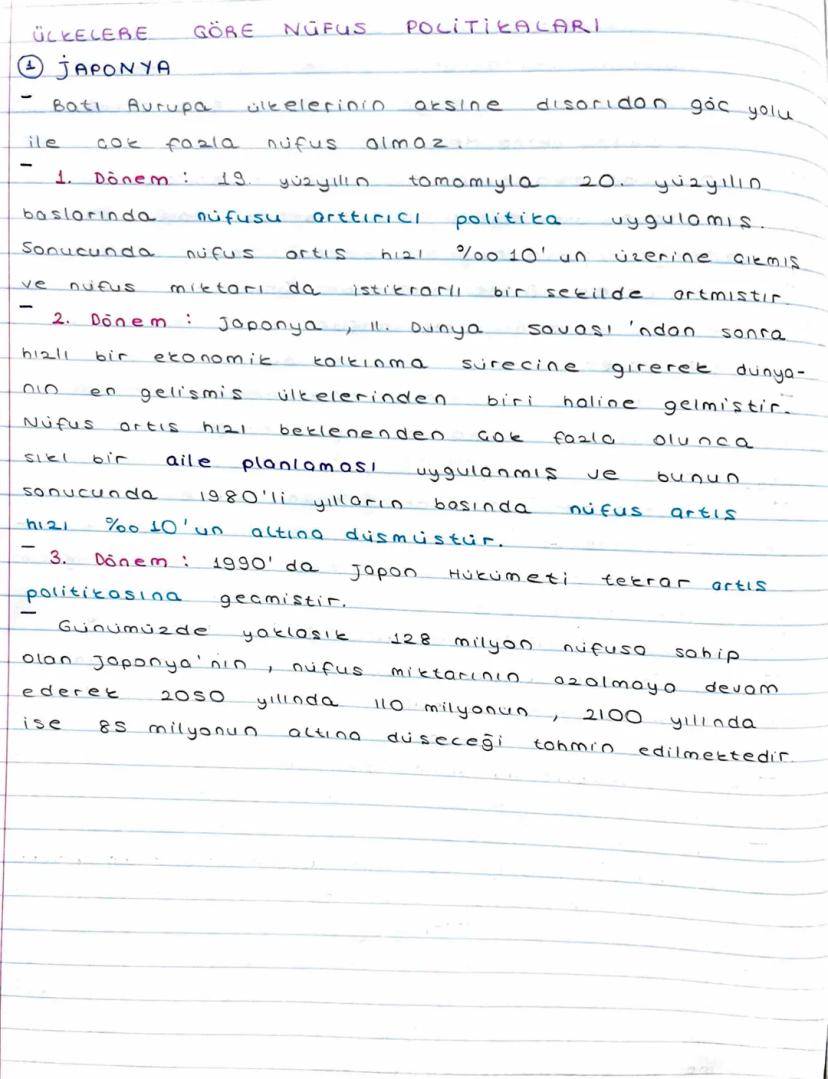 ÜLKELERE GÖRE NÜFUS POLİTİKALARI
① JAPONYA
- Batı Avrupa ülkelerinin aksine dısarıdan göc yolu
ile cok fazla nüfus almaz.
- 1. Dönem : 19. yüzyılın tamamıyla 20. yüzyılın
baslarında nüfusu arttırıcı politika uygulamıs.
Sonucunda nüfus artıs hızı %00 10'un üzerine cıkmıs
ve nüfus miktarı da istikrarlı bir sekilde artmıstır.
- 2. Dönem : Japonya , II. Dünya savası 'ndan sonra
hızlı bir ekonomik kalkınma sürecine girerek dünya-
nın en gelismis ülkelerinden biri haline gelmistir.
Nüfus artıs hızı beklenenden cok fazla olunca
sıkı bir aile planlaması uygulanmıs ve bunun
sonucunda 1980'li yılların basında nüfus artıs
hızı %00 10'un altına düsmüstür.
- 3. Dönem : 1990' da Japon Hükümeti tekrar artıs
politikasına gecmistir.
- Günümüzde yaklasık 128 milyon nüfusa sahip
olan Japonya'nın , nüfus miktarının azalmaya devam
ederek 2050 yılında 110 milyonun , 2100 yılında
ise 85 milyonun altına düseceği tahmin edilmektedir.